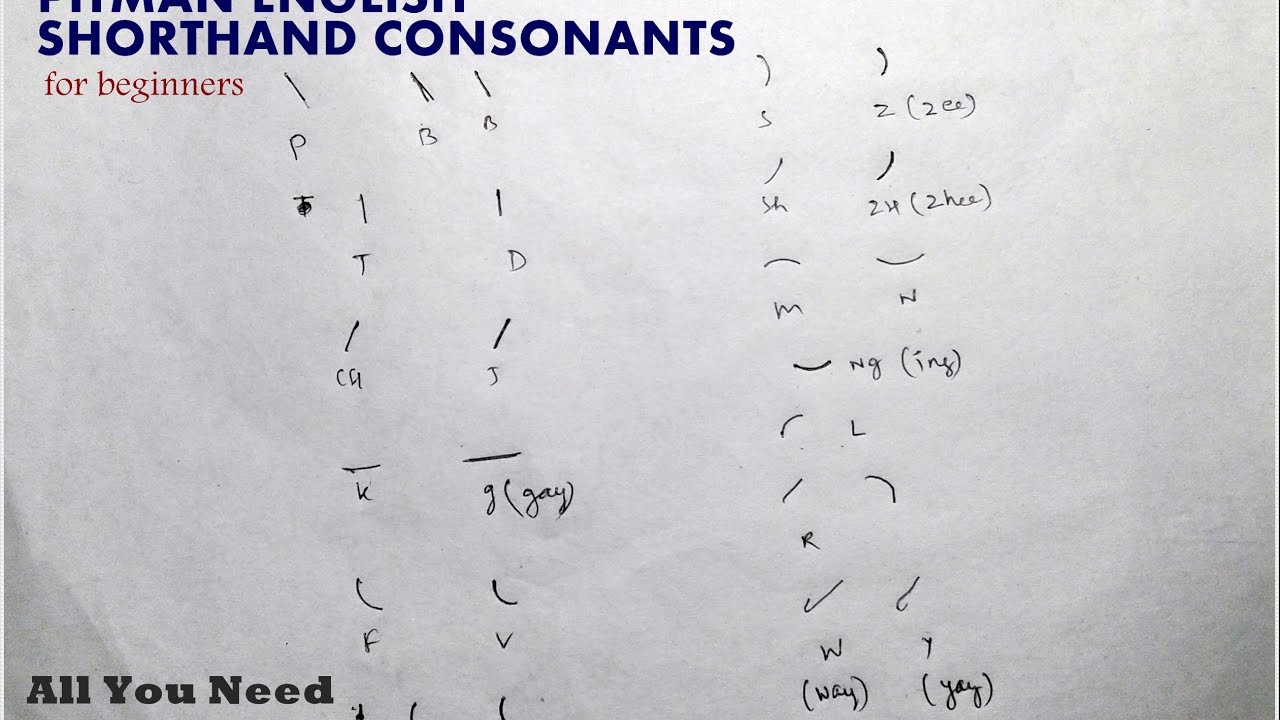 PITMAN ENGLISH
SHORTHAND CONSONANTS
for beginners
P B B
T D
CH J
K g (gay)
F V
S Z (Zee)
Sh ZH (Zhee)
M N
Ng (ing)
L
R
W Y
(way) (yay)
All You Need